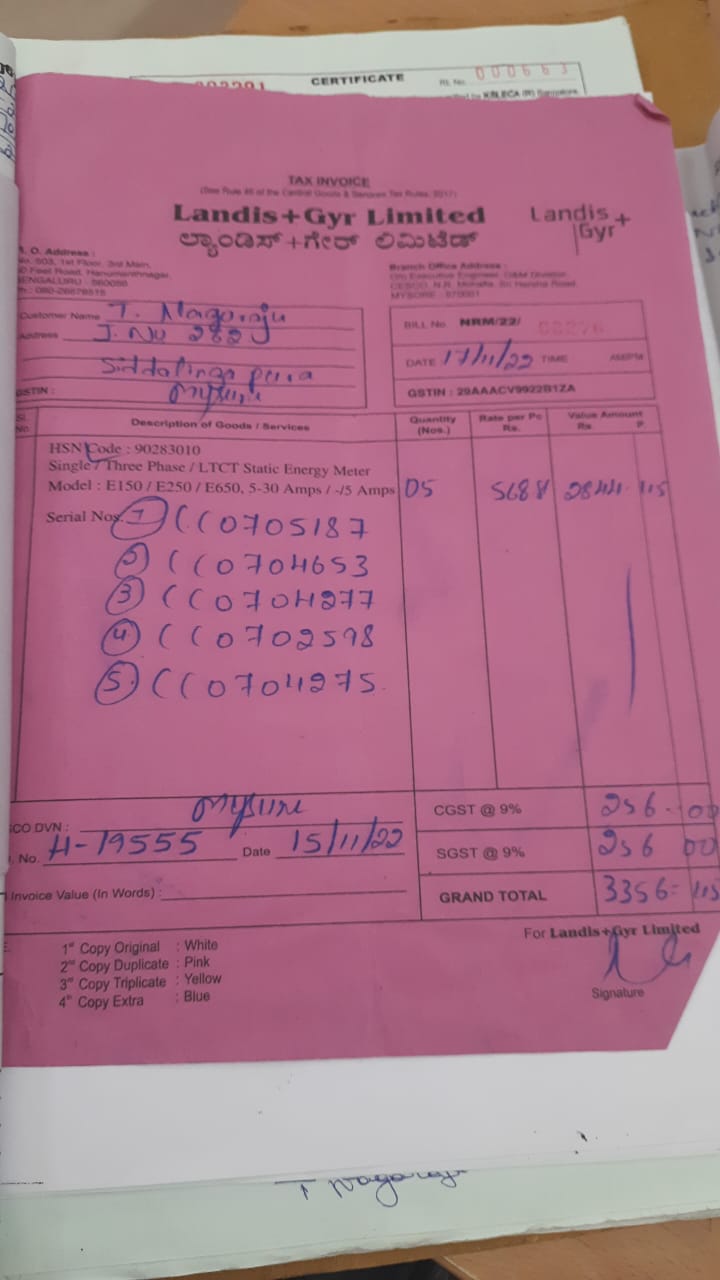 CERTIFICATE
000663
TAX INVOICE
(See Rule 46 of the Central Goods & Services Tax Rules, 2017)
Landis+Gyr Limited
ಲ್ಯಾಂಡಿಸ್+ಗೇರ್ ಲಿಮಿಟೆಡ್
Landis+
Gyr
O. Address :
No. 503, 1st Floor, 3rd Main,
Feet Road, Hanumanthnagar,
BENGALURU - 560050
Branch Office Address :
MYSORE - 570001
Customer Name T. Nagaraju
Address J. No 2820
Siddalingapura
Mysure
GSTIN :
BILL No. NRM/22/
DATE 17/11/22 TIME AM/PM
GSTIN : 29AAACV9922B1ZA
Sl. No. Description of Goods / Services Quantity (Nos.) Rate per Pc Rs. Value Amount Rs. P.
HSN Code : 90283010
Single / Three Phase / LTCT Static Energy Meter
Model : E150 / E250 / E650, 5-30 Amps / -/5 Amps 05 5688 2844. 45
Serial Nos. 1 CC0705187
2 CC0704653
3 CC0704277
4 CC0702598
5. CC0704275
CO DVN : Mysure
No. H-19555 Date 15/11/22
Invoice Value (In Words) :
CGST @ 9% 256.00
SGST @ 9% 256 00
GRAND TOTAL 3356=45
1st Copy Original : White
2nd Copy Duplicate : Pink
3rd Copy Triplicate : Yellow
4th Copy Extra : Blue
For Landis+Gyr Limited
Signature
T Nagaraju